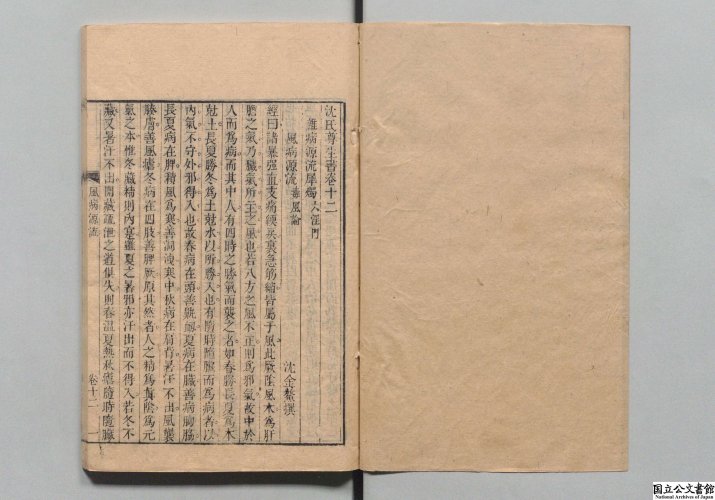 沈氏尊生書卷十二
雜病源流犀燭 六淫門
沈金鰲撰
風病源流 諸風論
經曰諸暴強直支痛緛戾裏急筋縮皆屬于風此厥陰風木爲肝
膽之氣乃臟氣所主之風也若八方之風不正則爲邪氣故中於
人而爲病而其中人有四時之勝氣而襲之者如春勝長夏爲木
尅土長夏勝冬爲土尅水以所勝入也有隨時隨臟而爲病者以
內氣不守外邪得入也故春病在頭善鼽衂夏病在臟善病胸脇
長夏病在脾精風爲寒善洞洩寒中秋病在肩背暑汗不出風襲
腠膚善風瘧冬病在四肢善脾厥原其然者人之精爲眞陰爲元
氣之本惟冬藏精則內塞雖夏之暑邪亦汗出而不得入若冬不
藏又暑汗不出閉藏疏泄之道俱失則春溫夏熱秋瘧隨時隨臟
風病源流
卷十二
一
国立公文書館
National Archives of Japan